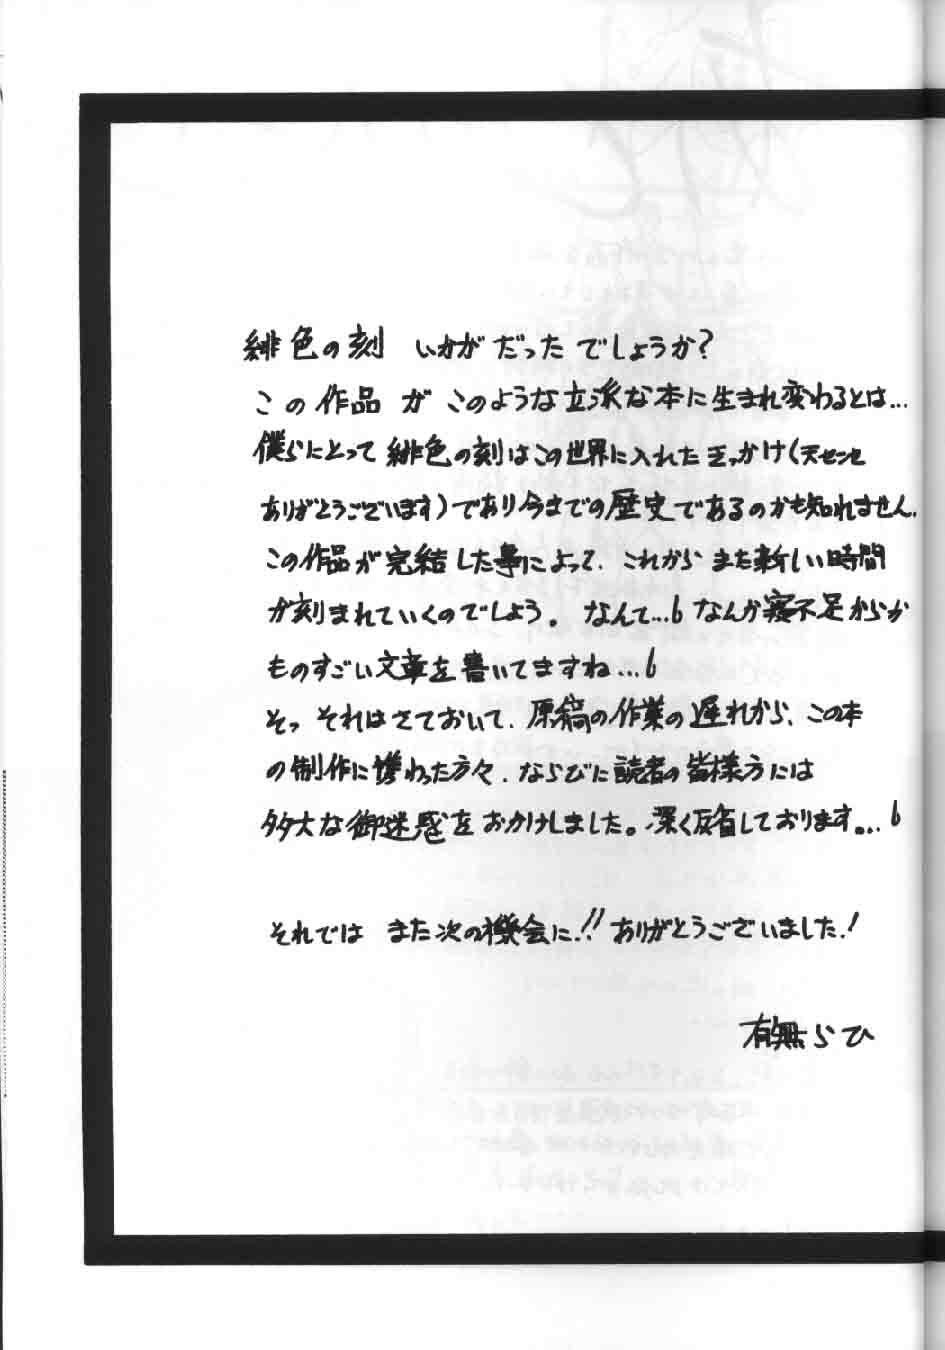 緋色の刻 いかがだったでしょうか?
この作品が このような立派な本に生まれ変わるとは…
僕らにとって緋色の刻はこの世界に入れたきっかけ(天センセ
ありがとうございます)であり今までの歴史であるのかも知れません.
この作品が完結した事によって、これからまた新しい時間
が刻まれていくのでしょう。なんて…6 なんか寝不足からか
ものすごい文章を書いてますね…6
そっ それはさておいて、原稿の作業の遅れから、この本
の制作に携わった方々、ならびに読者の皆様方には
多大な御迷惑をおかけしました。深く反省しております…6
それでは また次の機会に!! ありがとうございました!
有無らひ